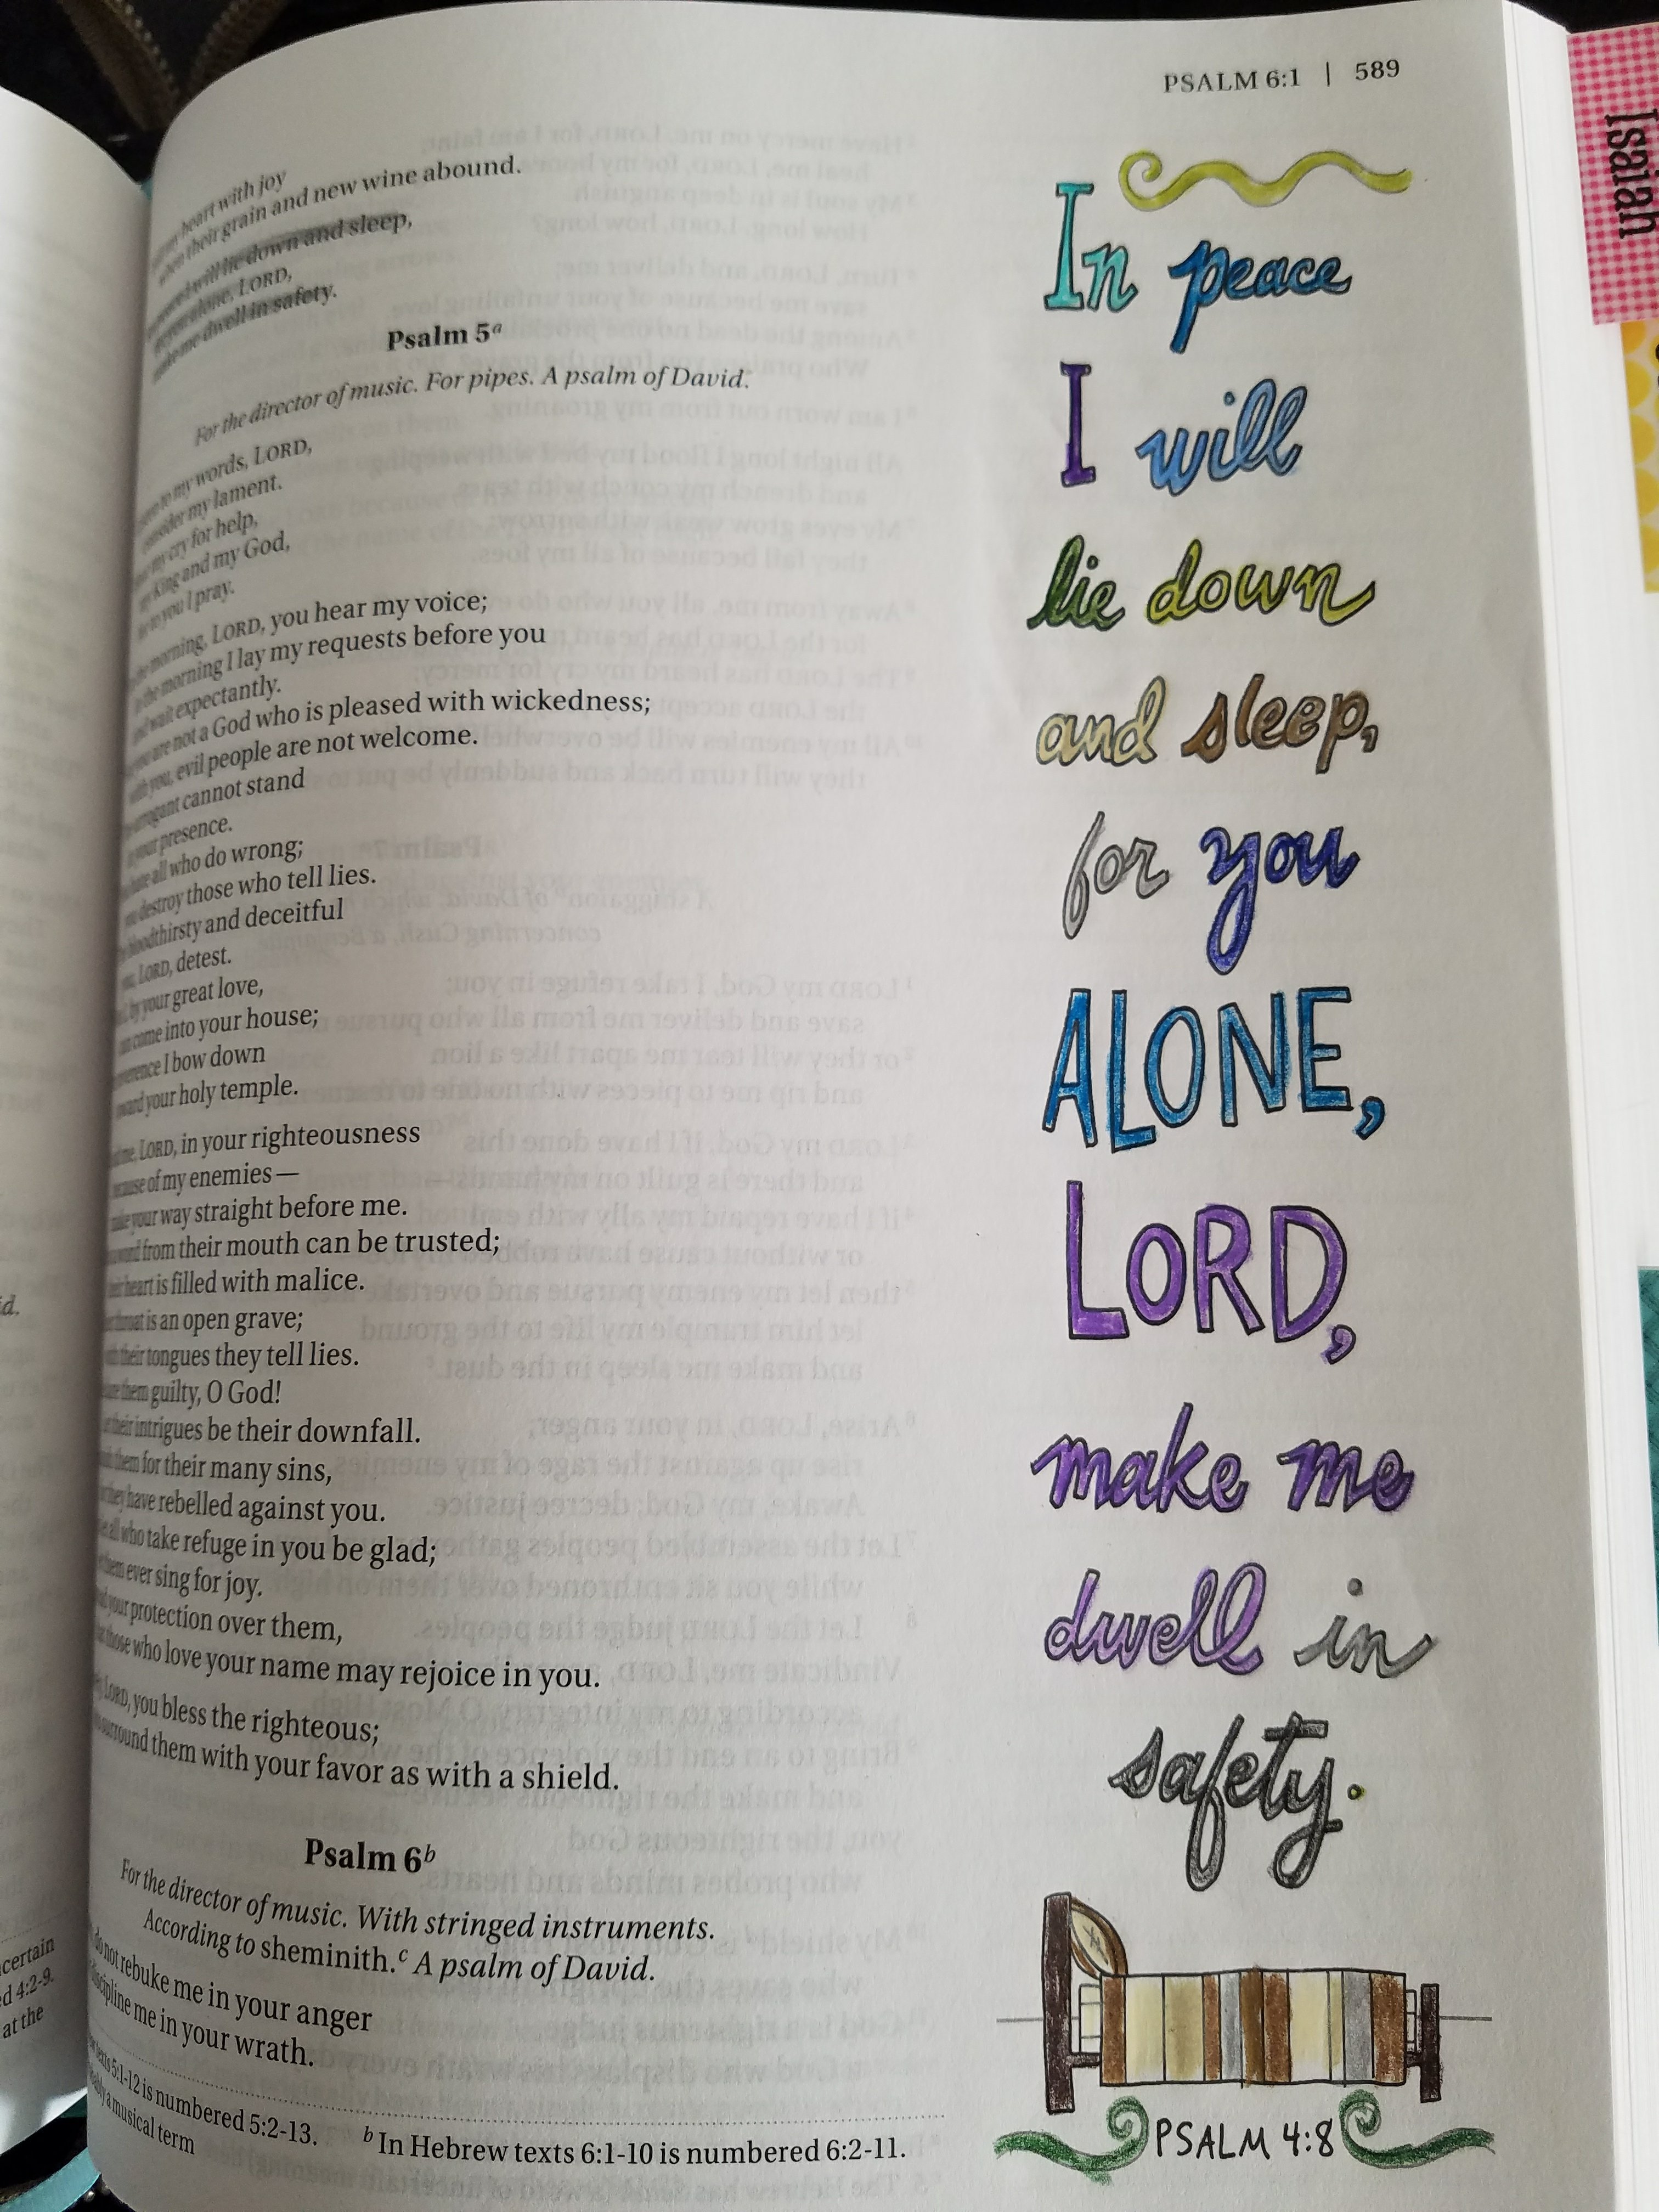 PSALM 6:1 | 589
heart with joy
when their grain and new wine abound.
will lie down and sleep,
alone, LORD,
make me dwell in safety.
Psalm 5a
For the director of music. For pipes. A psalm of David.
to my words, LORD,
consider my lament.
my cry for help,
my King and my God,
to you I pray.
the morning, LORD, you hear my voice;
in the morning I lay my requests before you
and wait expectantly.
you are not a God who is pleased with wickedness;
with you, evil people are not welcome.
arrogant cannot stand
your presence.
hate all who do wrong;
you destroy those who tell lies.
bloodthirsty and deceitful
you, LORD, detest.
by your great love,
can come into your house;
reverence I bow down
toward your holy temple.
me, LORD, in your righteousness
because of my enemies—
make your way straight before me.
word from their mouth can be trusted;
their heart is filled with malice.
throat is an open grave;
with their tongues they tell lies.
them guilty, O God!
their intrigues be their downfall.
them for their many sins,
they have rebelled against you.
all who take refuge in you be glad;
them ever sing for joy.
your protection over them,
those who love your name may rejoice in you.
LORD, you bless the righteous;
surround them with your favor as with a shield.
Psalm 6b
For the director of music. With stringed instruments.
According to sheminith.c A psalm of David.
do not rebuke me in your anger
discipline me in your wrath.
texts 5:1-12 is numbered 5:2-13. b In Hebrew texts 6:1-10 is numbered 6:2-11.
a musical term
In peace
I will
lie down
and sleep,
for you
ALONE,
LORD,
make me
dwell in
safety.
PSALM 4:8
Isaiah
id.
certain
d 4:2-9.
at the